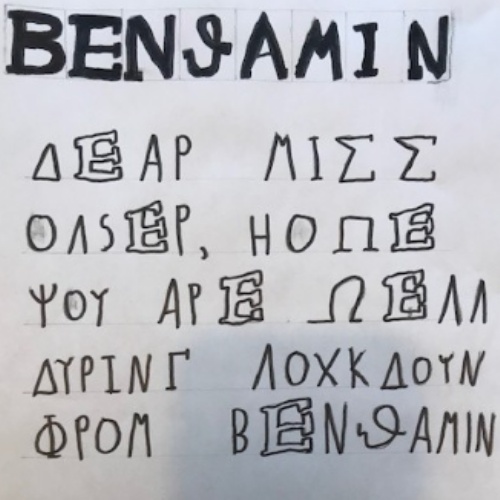 ΒΕΝϑΑΜΙΝ
ΔΕΑΡ ΜΙΣΣ
ΟΛSΕΡ, ΗΟΠΕ
ΨΟΥ ΑΡΕ ΩΕΛΛ
ΔΥΡΙΝΓ ΛΟΧΚΔΟΥΝ
ΦΡΟΜ ΒΕΝϑΑΜΙΝ